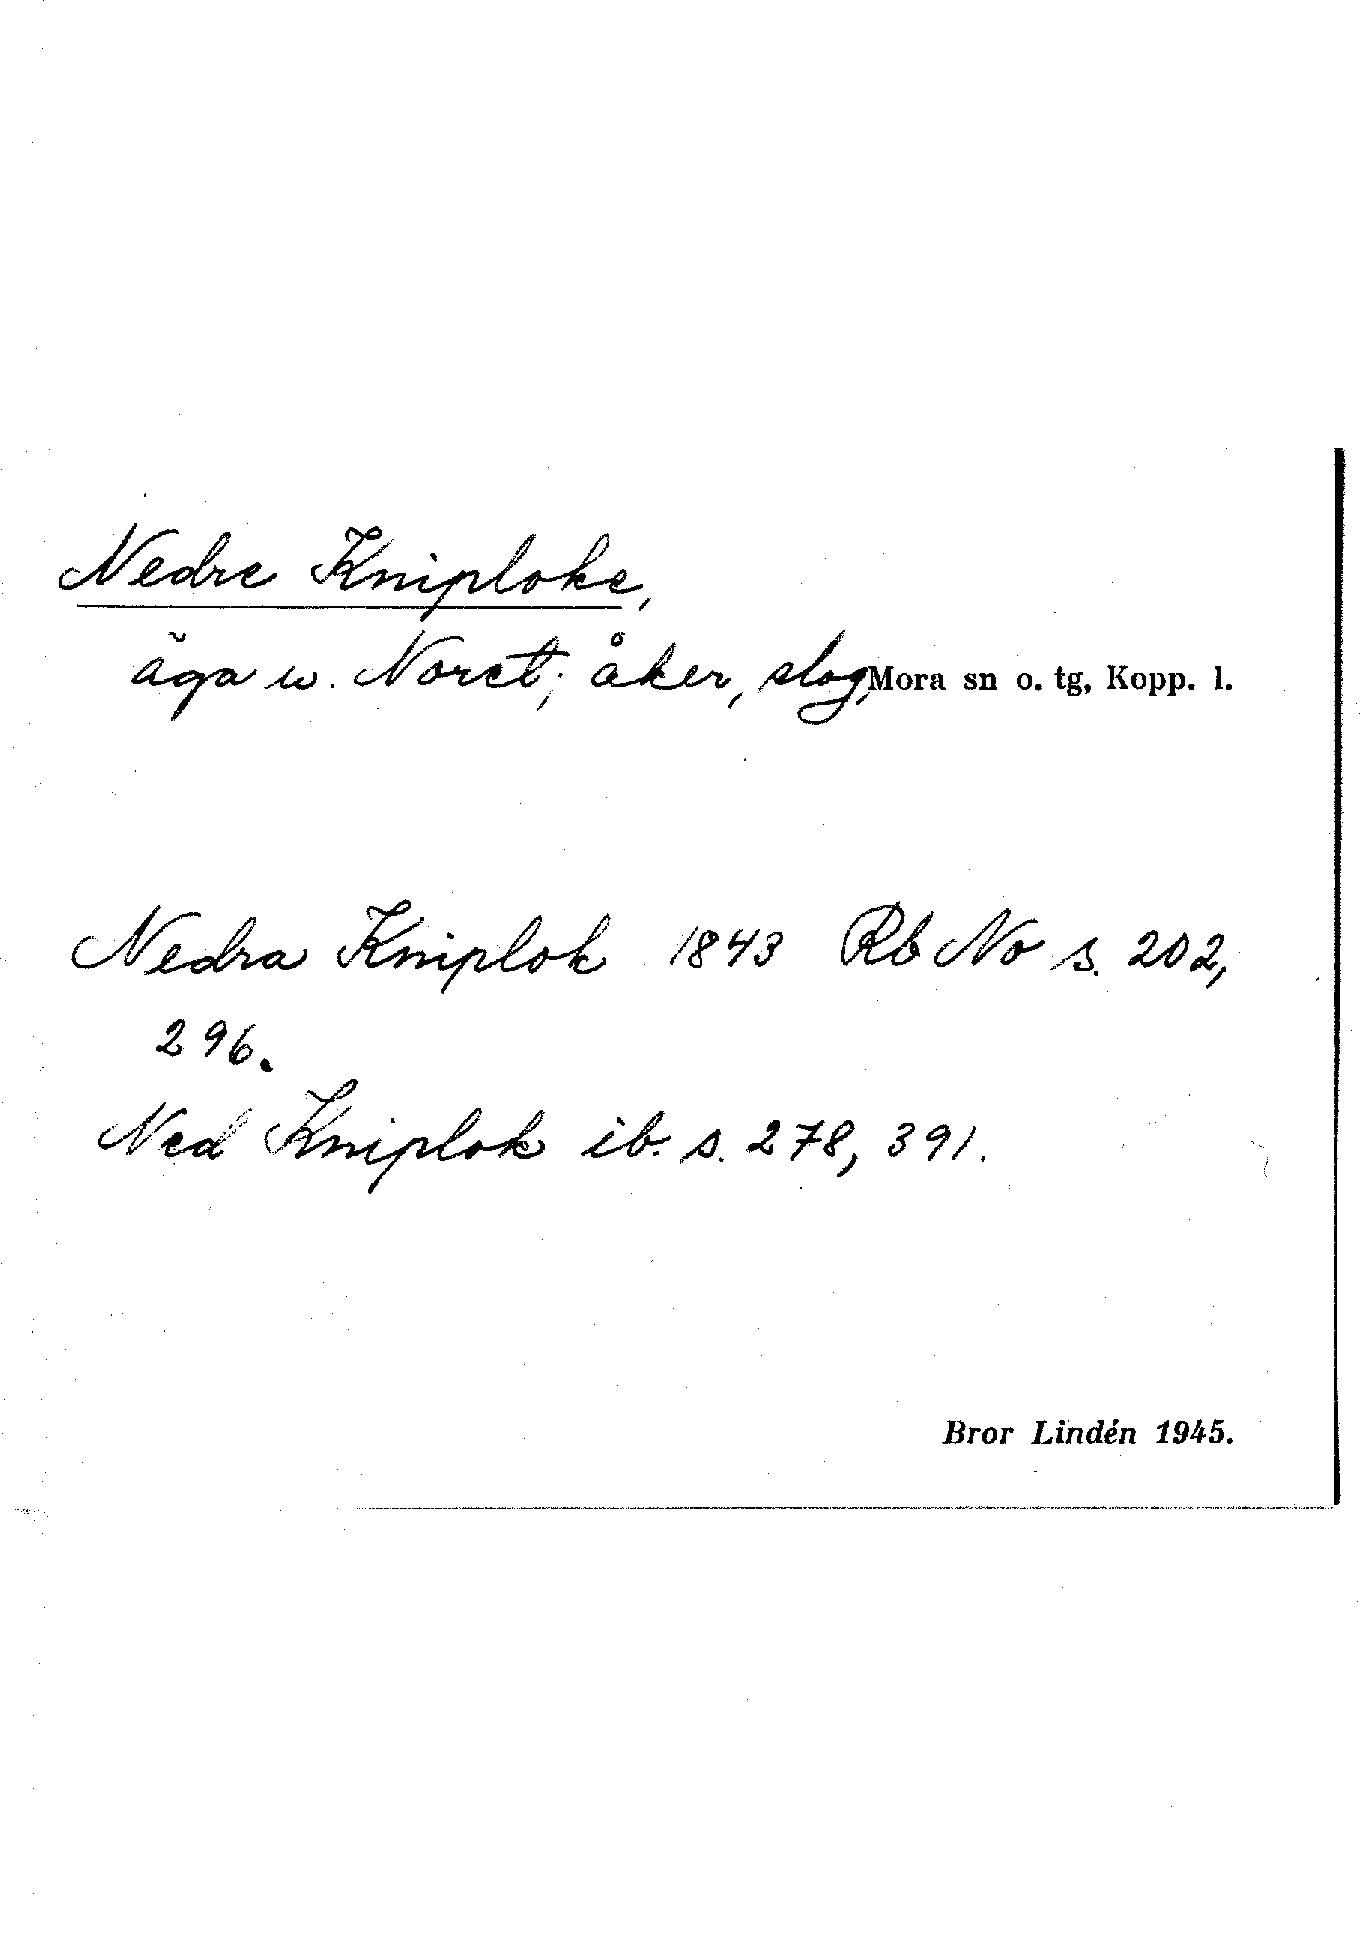 Nedre Kniploke,
äga w. Noret; åker, slog, Mora sn o. tg, Kopp. l.
Nedra Kniplok 1843 Rb No s. 202,
296.
Ned Kniplok ib. s. 278, 391.
Bror Lindén 1945.